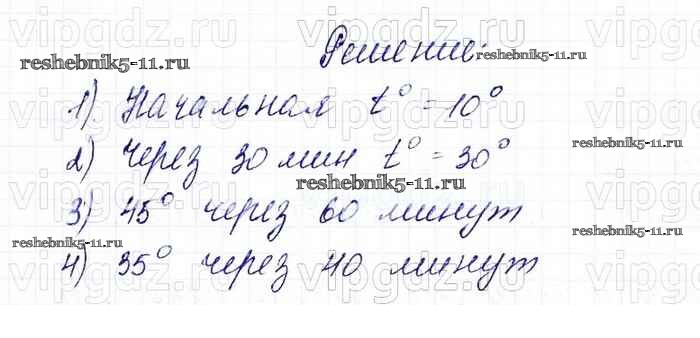 Решение:
reshebnik5-11.ru
reshebnik5-11.ru
1) Начальная t° = 10°
2) через 30 мин t° = 30°
reshebnik5-11.ru
reshebnik5-11.ru
3) 45° через 60 минут
reshebnik5-11.ru
reshebnik5-11.ru
4) 35° через 40 минут
vipgdz.ru